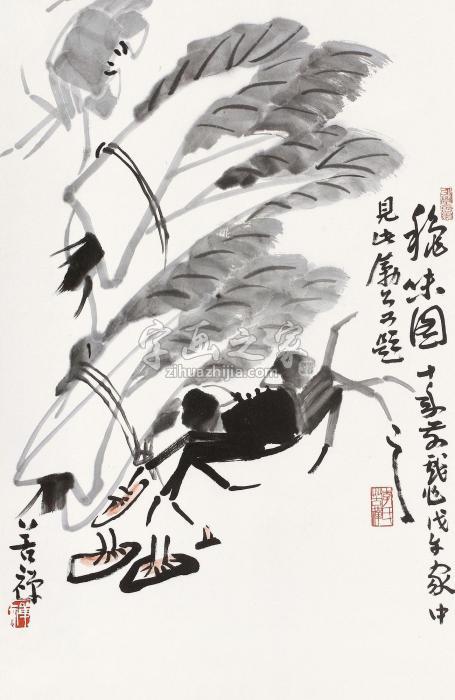 秋味图 十年前戏作戊午家中
见此励公又题
苦禅
字画之家
zihuazhijia.com